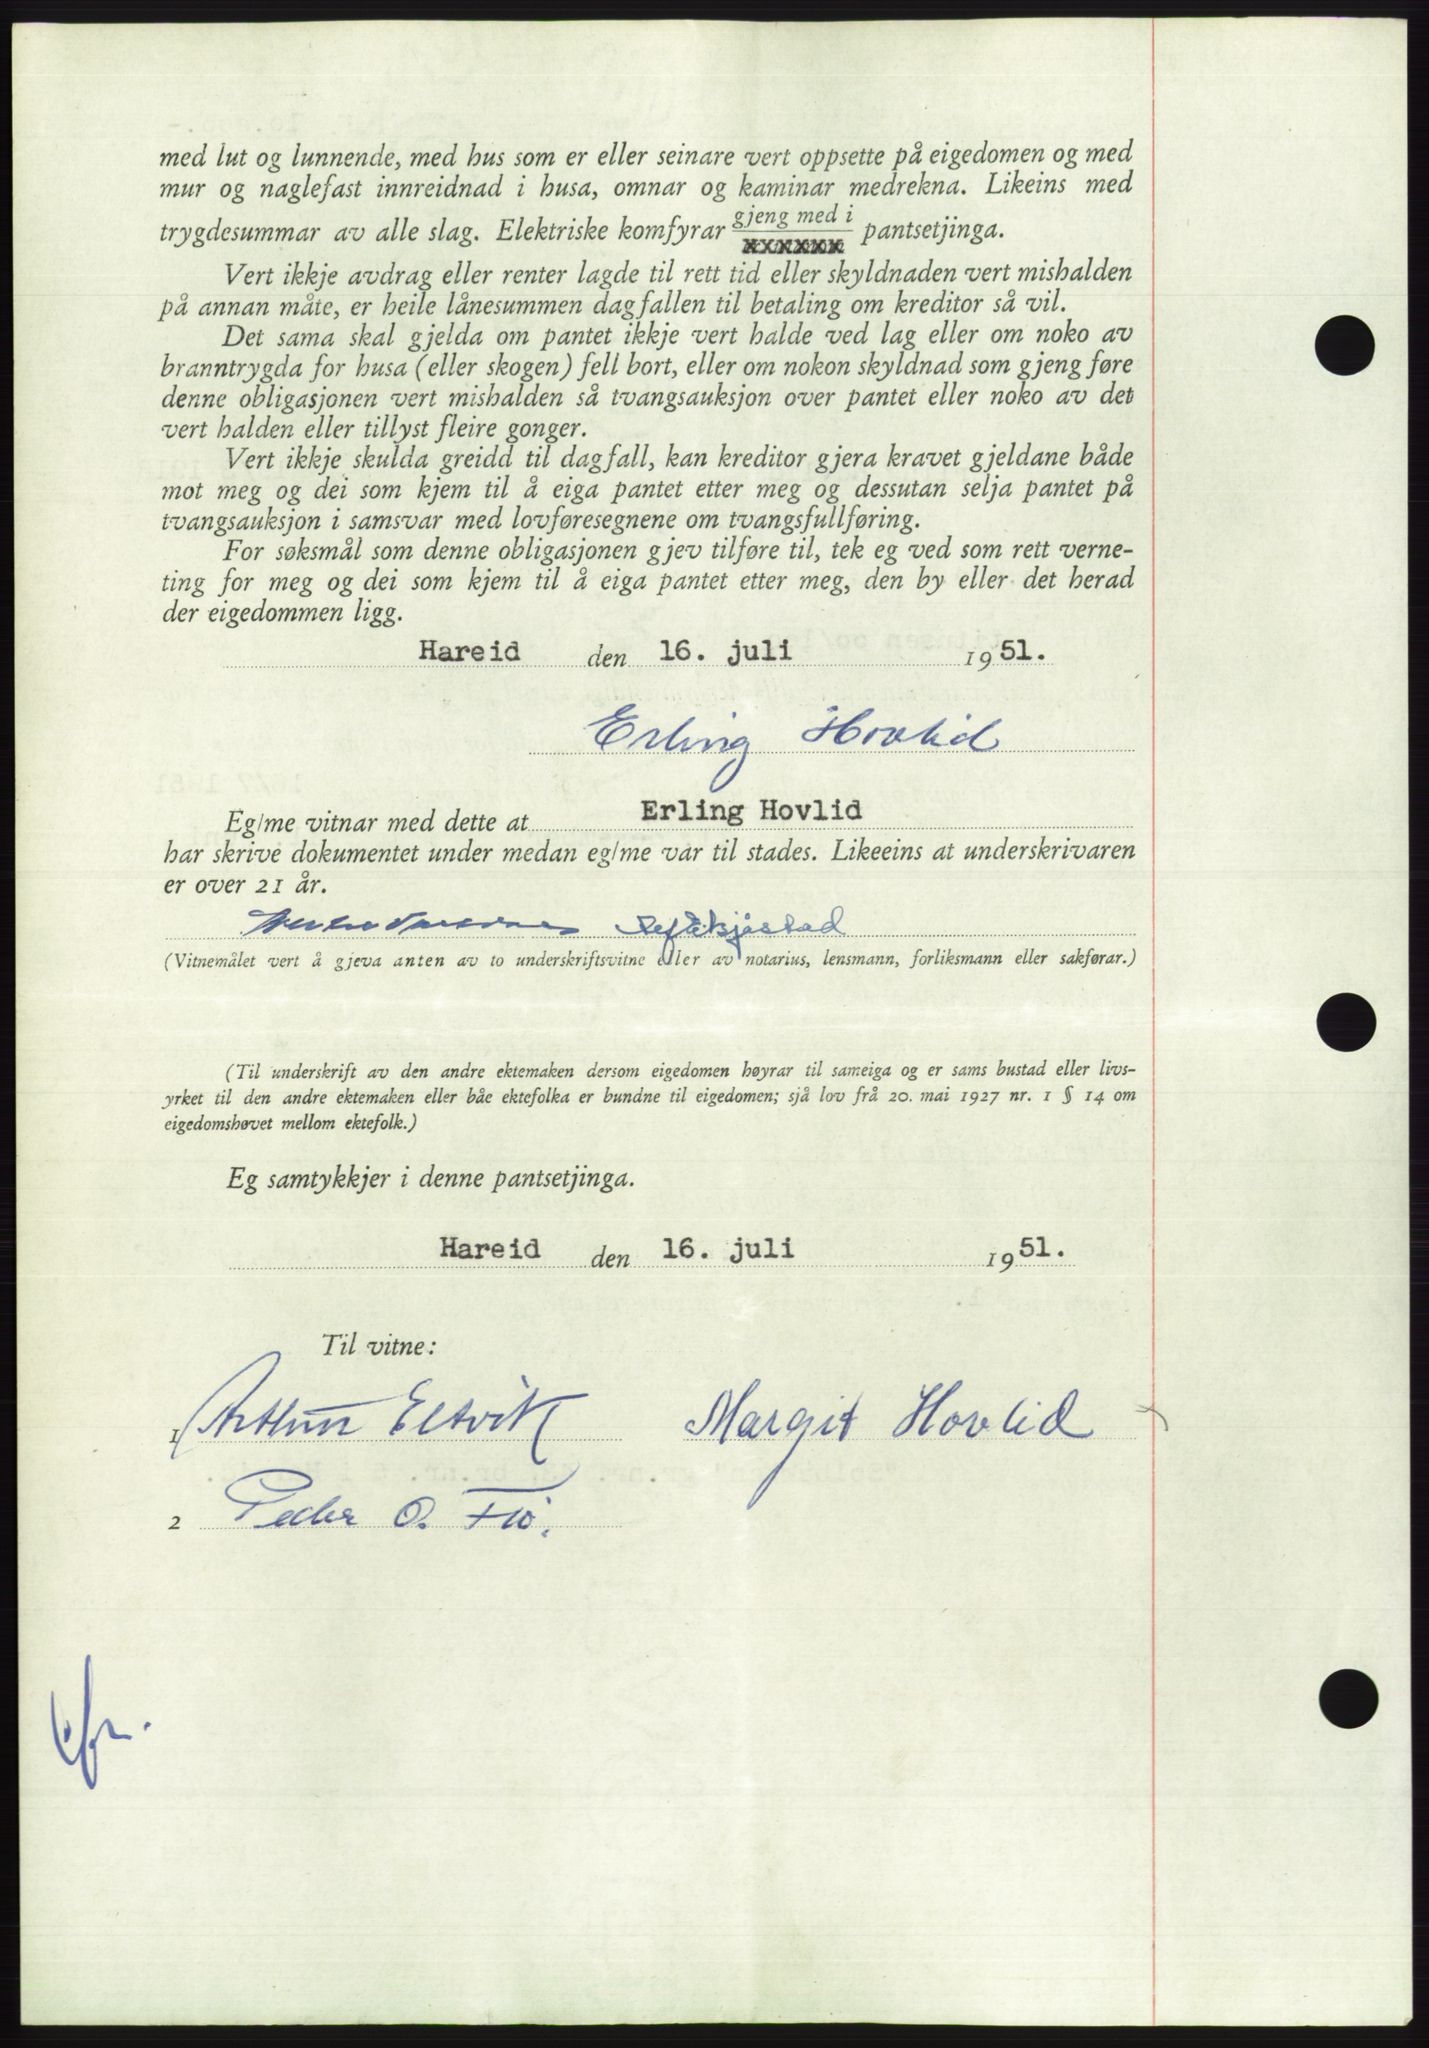 med lut og lunnende, med hus som er eller seinare vert oppsette på eigedomen og med
mur og naglefast innreidnad i husa, omnar og kaminar medrekna. Likeins med
trygdesummar av alle slag. Elektriske komfyrar gjeng med i xxxxxx pantsetjinga.
Vert ikkje avdrag eller renter lagde til rett tid eller skyldnaden vert mishalden
på annan måte, er heile lånesummen dagfallen til betaling om kreditor så vil.
Det sama skal gjelda om pantet ikkje vert halde ved lag eller om noko av
branntrygda for husa (eller skogen) fell bort, eller om nokon skyldnad som gjeng føre
denne obligasjonen vert mishalden så tvangsauksjon over pantet eller noko av det
vert halden eller tillyst fleire gonger.
Vert ikkje skulda greidd til dagfall, kan kreditor gjera kravet gjeldane både
mot meg og dei som kjem til å eiga pantet etter meg og dessutan selja pantet på
tvangsauksjon i samsvar med lovføresegnene om tvangsfullføring.
For søksmål som denne obligasjonen gjev tilføre til, tek eg ved som rett verne-
ting for meg og dei som kjem til å eiga pantet etter meg, den by eller det herad
der eigedommen ligg.
Hareid den 16. juli 1951.
Erling Hovlid
Eg/me vitnar med dette at Erling Hovlid
har skrive dokumentet under medan eg/me var til stades. Likeeins at underskrivaren
er over 21 år.
(Vitnemålet vert å gjeva anten av to underskriftsvitne eller av notarius, lensmann, forliksmann eller sakførar.)
(Til underskrift av den andre ektemaken dersom eigedomen høyrar til sameiga og er sams bustad eller livs-
yrket til den andre ektemaken eller båe ektefolka er bundne til eigedomen; sjå lov frå 20. mai 1927 nr. 1 § 14 om
eigedomshøvet mellom ektefolk.)
Eg samtykkjer i denne pantsetjinga.
Hareid den 16. juli 1951.
Til vitne:
1 Arthur Eltvik Margit Hovlid
2 Peder O. Flø.